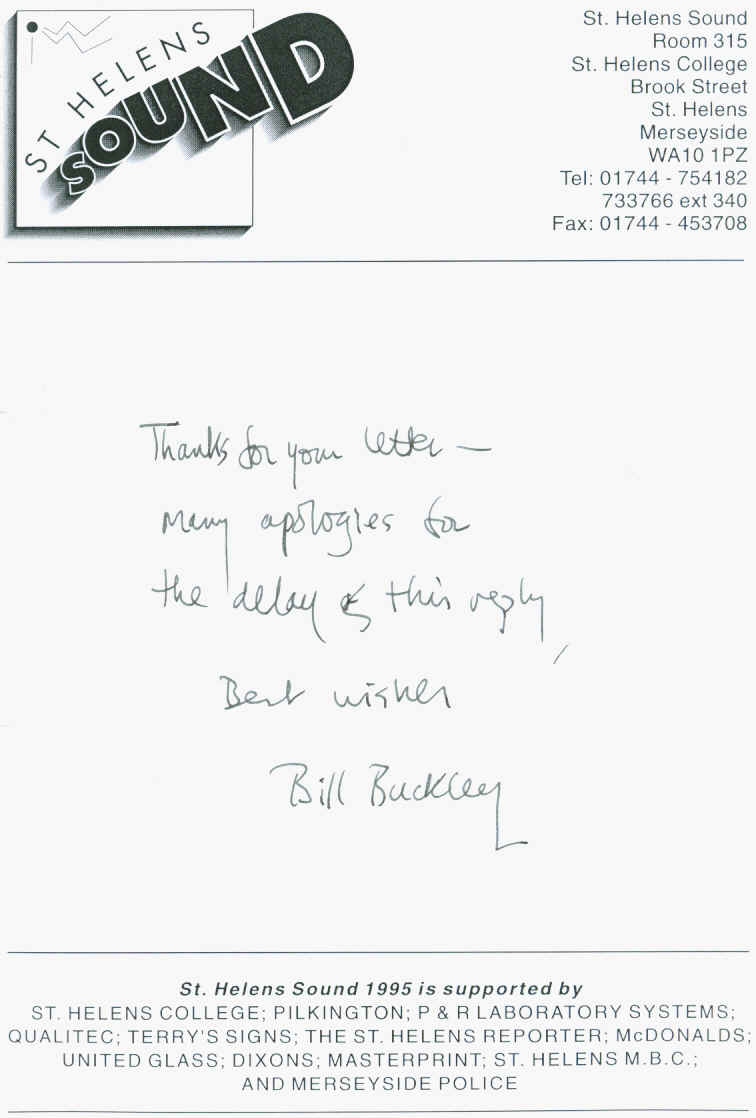 ST HELENS
SOUND
St. Helens Sound
Room 315
St. Helens College
Brook Street
St. Helens
Merseyside
WA10 1PZ
Tel: 01744 - 754182
733766 ext 340
Fax: 01744 - 453708
Thanks for your letter —
many apologies for
the delay of this reply,
Best wishes
Bill Buckley
St. Helens Sound 1995 is supported by
ST. HELENS COLLEGE; PILKINGTON; P & R LABORATORY SYSTEMS;
QUALITEC; TERRY'S SIGNS; THE ST. HELENS REPORTER; McDONALDS;
UNITED GLASS; DIXONS; MASTERPRINT; ST. HELENS M.B.C.;
AND MERSEYSIDE POLICE